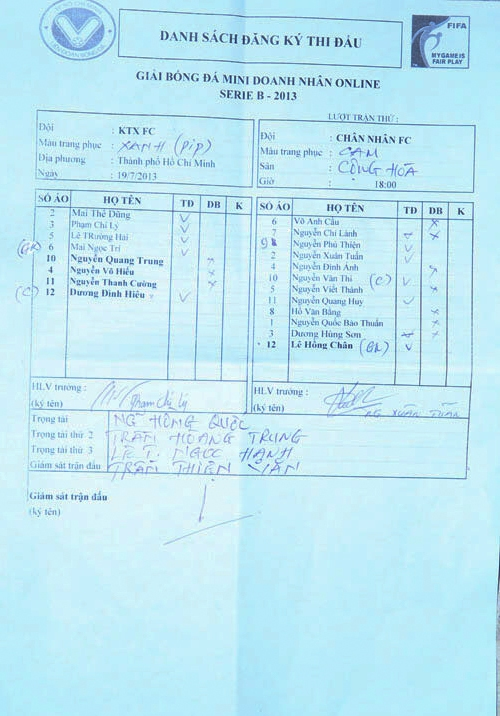 FIFA
MY GAME IS
FAIR PLAY
DANH SÁCH ĐĂNG KÝ THI ĐẤU
GIẢI BÓNG ĐÁ MINI DOANH NHÂN ONLINE
SERIE B - 2013
LƯỢT TRẬN THỨ :
Đội : KTX FC
Màu trang phục : XANH (PiP)
Địa phương : Thành phố Hồ Chí Minh
Ngày : 19/7/2013
Đội : CHÂN NHÂN FC
Màu trang phục : CAM
Sân : CỘNG HÒA
Giờ : 18:00
SỐ ÁO HỌ TÊN TĐ DB K
2 Mai Thế Dũng
3 Phạm Chí Lý
5 Lê TRường Hải
(GK) 6 Mai Ngọc Trí
10 Nguyễn Quang Trung
4 Nguyễn Võ Hiếu
11 Nguyễn Thanh Cường
(C) 12 Dương Đình Hiếu
SỐ ÁO HỌ TÊN TĐ DB K
6 Võ Anh Cầu
7 Nguyễn Chí Lành
9 Nguyễn Phú Thiện
2 Nguyễn Xuân Tuấn
4 Nguyễn Đình Ánh
10 Nguyễn Văn Thi (C)
5 Nguyễn Viết Thành
11 Nguyễn Quang Huy
8 Hồ Văn Bằng
1 Nguyễn Quốc Bảo Thuấn
3 Dương Hùng Sơn
12 Lê Hồng Chân (GK)
HLV trưởng :
(ký tên) Phạm Chí Lý
HLV trưởng :
(ký tên) NG XUÂN TUẤN
Trọng tài NGÔ HỒNG QUỐC
Trọng tài thứ 2 TRẦN HOÀNG TRUNG
Trọng tài thứ 3 LÊ T. NGỌC HẠNH
Giám sát trận đấu TRẦN THIỆN
Giám sát trận đấu
(ký tên)